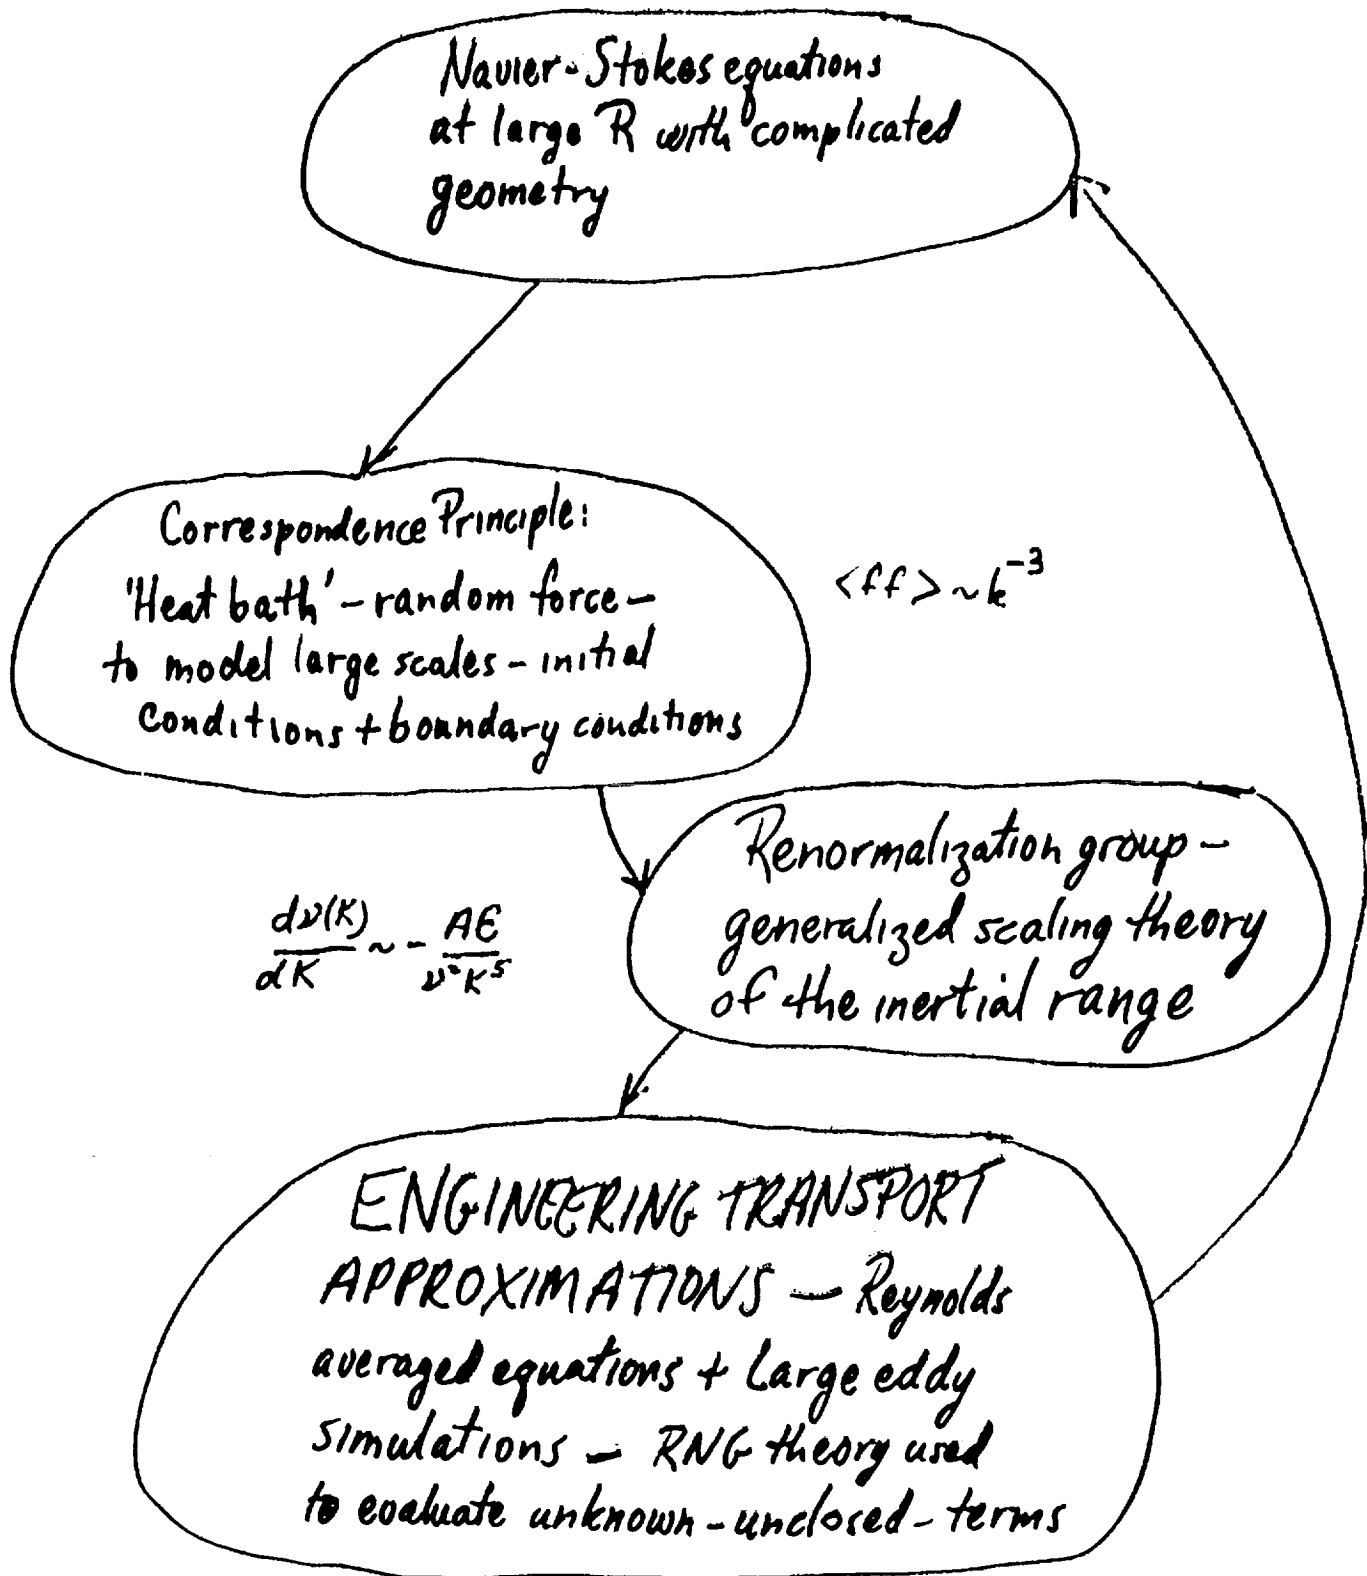 Navier-Stokes equations
at large R with complicated
geometry
Correspondence Principle:
'Heat bath' - random force -
to model large scales - initial
conditions + boundary conditions
<ff> ~ k^-3
Renormalization group -
generalized scaling theory
of the inertial range
dν(K)/dK ~ - Aε/ν²K⁵
ENGINEERING TRANSPORT
APPROXIMATIONS — Reynolds
averaged equations + Large eddy
simulations - RNG theory used
to evaluate unknown - unclosed - terms